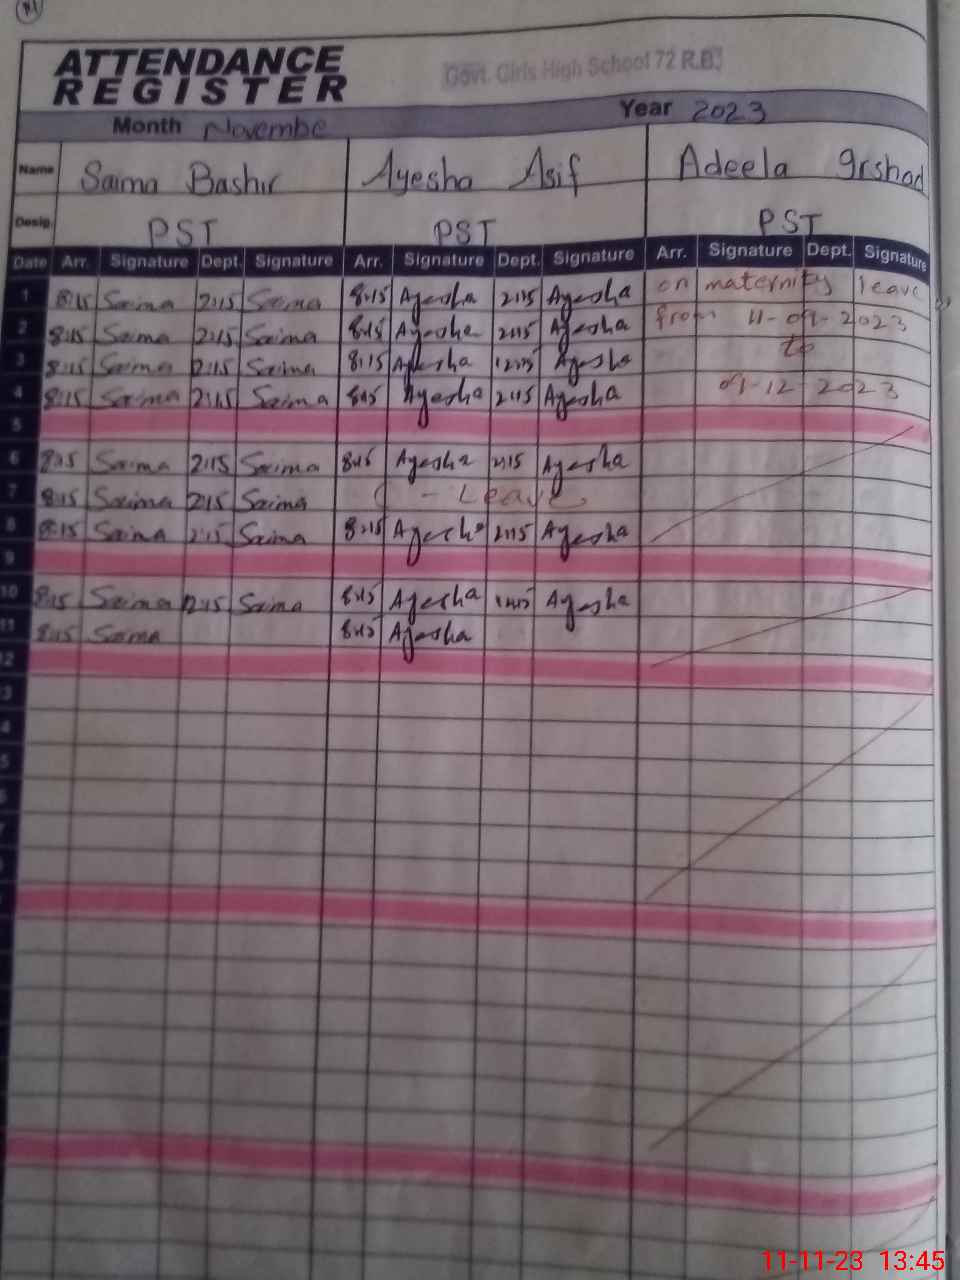 ATTENDANCE
REGISTER
Govt. Girls High School 72 R.B.
Month Novembe Year 2023
Name Saima Bashir Ayesha Asif Adeela Irshad
Desig. PST PST PST
Date Arr. Signature Dept. Signature Arr. Signature Dept. Signature Arr. Signature Dept. Signature
1 8:15 Saima 2:15 Saima 8:15 Ayesha 2:15 Ayesha on maternity leave
2 8:15 Saima 2:15 Saima 8:15 Ayesha 2:15 Ayesha from 11-09-2023
3 8:15 Saima 2:15 Saima 8:15 Ayesha Ayesha to
4 8:15 Saima 2:15 Saima 8:15 Ayesha 2:15 Ayesha 09-12-2023
5
6 8:15 Saima 2:15 Saima 8:15 Ayesha 2:15 Ayesha
7 8:15 Saima 2:15 Saima - Leave
8 8:15 Saima 2:15 Saima 8:15 Ayesha 2:15 Ayesha
9
10 8:15 Saima 12:15 Saima 8:15 Ayesha Ayesha
11 8:15 Saima 8:15 Ayesha
12
11-11-23 13:45